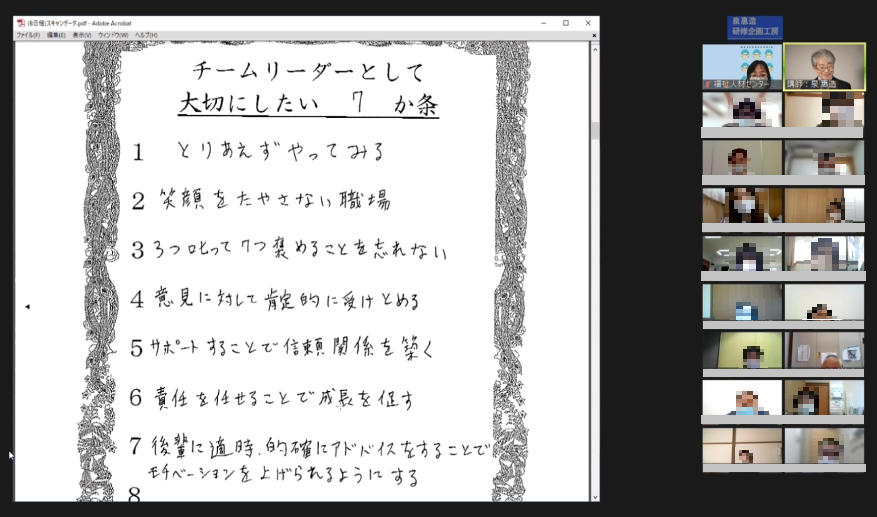 (8日程)スキャンデータ.pdf - Adobe Acrobat
ファイル(F) 編集(E) 表示(V) ウィンドウ(W) ヘルプ(H)
チームリーダーとして
大切にしたい 7 か条
1 とりあえずやってみる
2 笑顔をたやさない職場
3 3つ叱って7つ褒めることを忘れない
4 意見に対して肯定的に受けとめる
5 サポートすることで信頼関係を築く
6 責任を任せることで成長を促す
7 後輩に適時、的確にアドバイスをすることで
モチベーションを上げられるようにする
8
泉惠造
研修企画工房
福祉人材センター
講師:泉 惠造